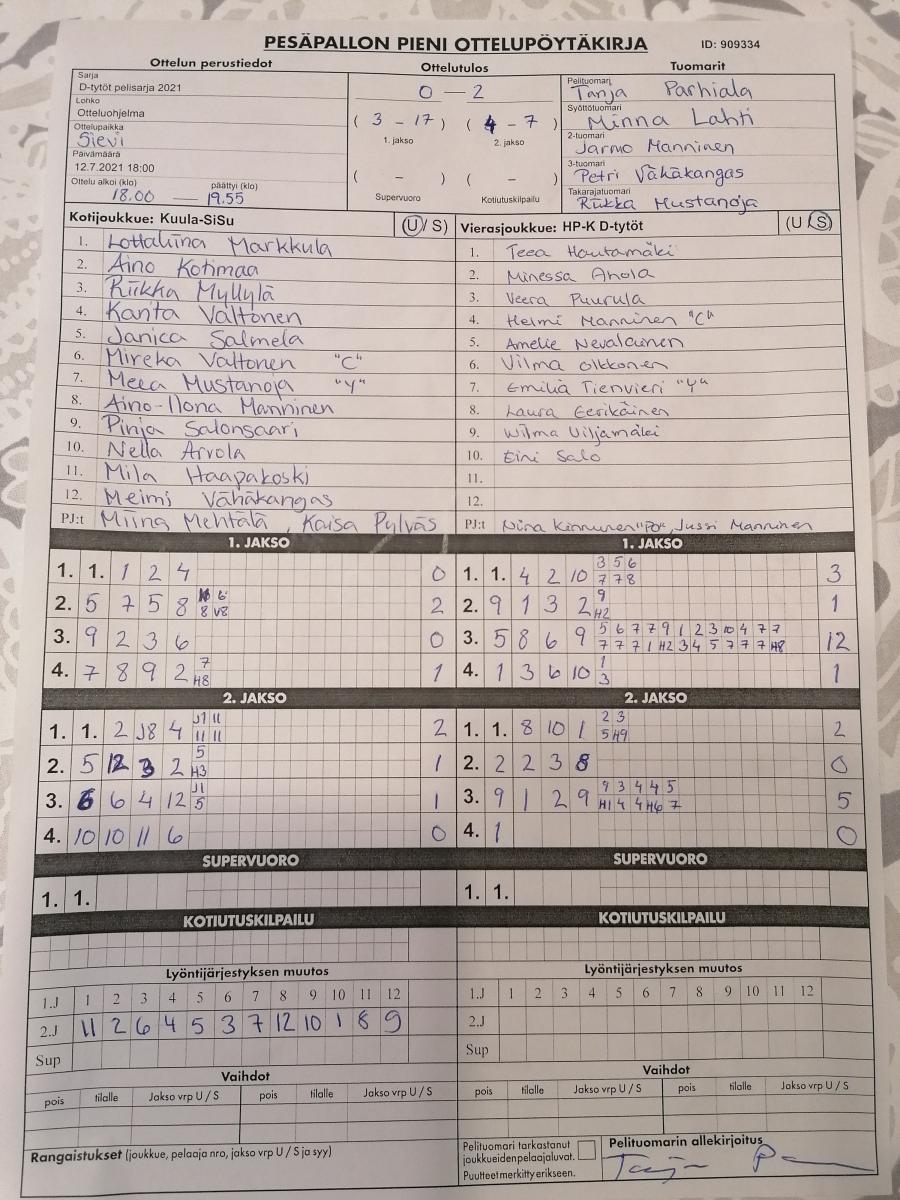 PESÄPALLON PIENI OTTELUPÖYTÄKIRJA ID: 909334
Ottelun perustiedot Ottelutulos Tuomarit
Sarja
D-tytöt pelisarja 2021
Lohko
Otteluohjelma
Ottelupaikka
Sievi
Päivämäärä
12.7.2021 18:00
Ottelu alkoi (klo) päättyi (klo)
18.00 — 19.55
0 — 2
( 3 - 17 ) ( 4 - 7 )
1. jakso 2. jakso
( - ) ( - )
Supervuoro Kotiutuskilpailu
Pelituomari
Tanja Parhiala
Syöttötuomari
Minna Lahti
2-tuomari
Jarmo Manninen
3-tuomari
Petri Vähäkangas
Takarajatuomari
Riikka Mustanoja
Kotijoukkue: Kuula-SiSu (U/ S)
1. Lottaliina Markkula
2. Aino Kotimaa
3. Riikka Myllylä
4. Kanta Valtonen
5. Janica Salmela
6. Mireka Valtonen "C"
7. Meea Mustanoja "Y"
8. Aino-Ilona Manninen
9. Pinja Salonsaari
10. Nella Arvola
11. Mila Haapakoski
12. Meimi Vähäkangas
PJ:t Miina Mehtälä, Kaisa Pylväs
Vierasjoukkue: HP-K D-tytöt (U/S)
1. Teea Hautamäki
2. Minessa Ahola
3. Veera Puurula
4. Helmi Manninen "C"
5. Amelie Nevalainen
6. Vilma Olkkonen
7. Emilia Tienvieri "Y"
8. Laura Eerikäinen
9. Wilma Viljamäki
10. Eini Salo
11.
12.
PJ:t Nina Kinnunen "PO", Jussi Manninen
1. JAKSO
1. 1. 1 2 4 0
2. 5 7 5 8 6 8 V8 2
3. 9 2 3 6 0
4. 7 8 9 2 7 H8 1
1. JAKSO
1. 1. 4 2 10 3 5 6 3
7 7 8
2. 9 1 3 2 9 1
H2
3. 5 8 6 9 5 6 7 7 9 1 2 3 10 4 7 7 12
7 7 7 1 H2 3 4 5 7 7 7 H8
4. 1 3 6 10 1 1
3
2. JAKSO
1. 1. 2 J8 4 J1 11 2
11 11
2. 5 12 3 2 5 1
H3
3. 6 6 4 12 J1 1
5
4. 10 10 11 6 0
2. JAKSO
1. 1. 8 10 1 2 3 2
5 H9
2. 2 2 3 8 0
3. 9 1 2 9 9 3 4 4 5 5
H1 4 4 H6 7
4. 1 0
SUPERVUORO
1. 1.
SUPERVUORO
1. 1.
KOTIUTUSKILPAILU
KOTIUTUSKILPAILU
Lyöntijärjestyksen muutos
1.J 1 2 3 4 5 6 7 8 9 10 11 12
2.J 11 2 6 4 5 3 7 12 10 1 8 9
Sup
Lyöntijärjestyksen muutos
1.J 1 2 3 4 5 6 7 8 9 10 11 12
2.J
Sup
Vaihdot
pois tilalle Jakso vrp U / S pois tilalle Jakso vrp U / S
Vaihdot
pois tilalle Jakso vrp U / S pois tilalle Jakso vrp U / S
Rangaistukset (joukkue, pelaaja nro, jakso vrp U / S ja syy)
Pelituomari tarkastanut
joukkueidenpelaajaluvat.
Puutteet merkitty erikseen.
Pelituomarin allekirjoitus